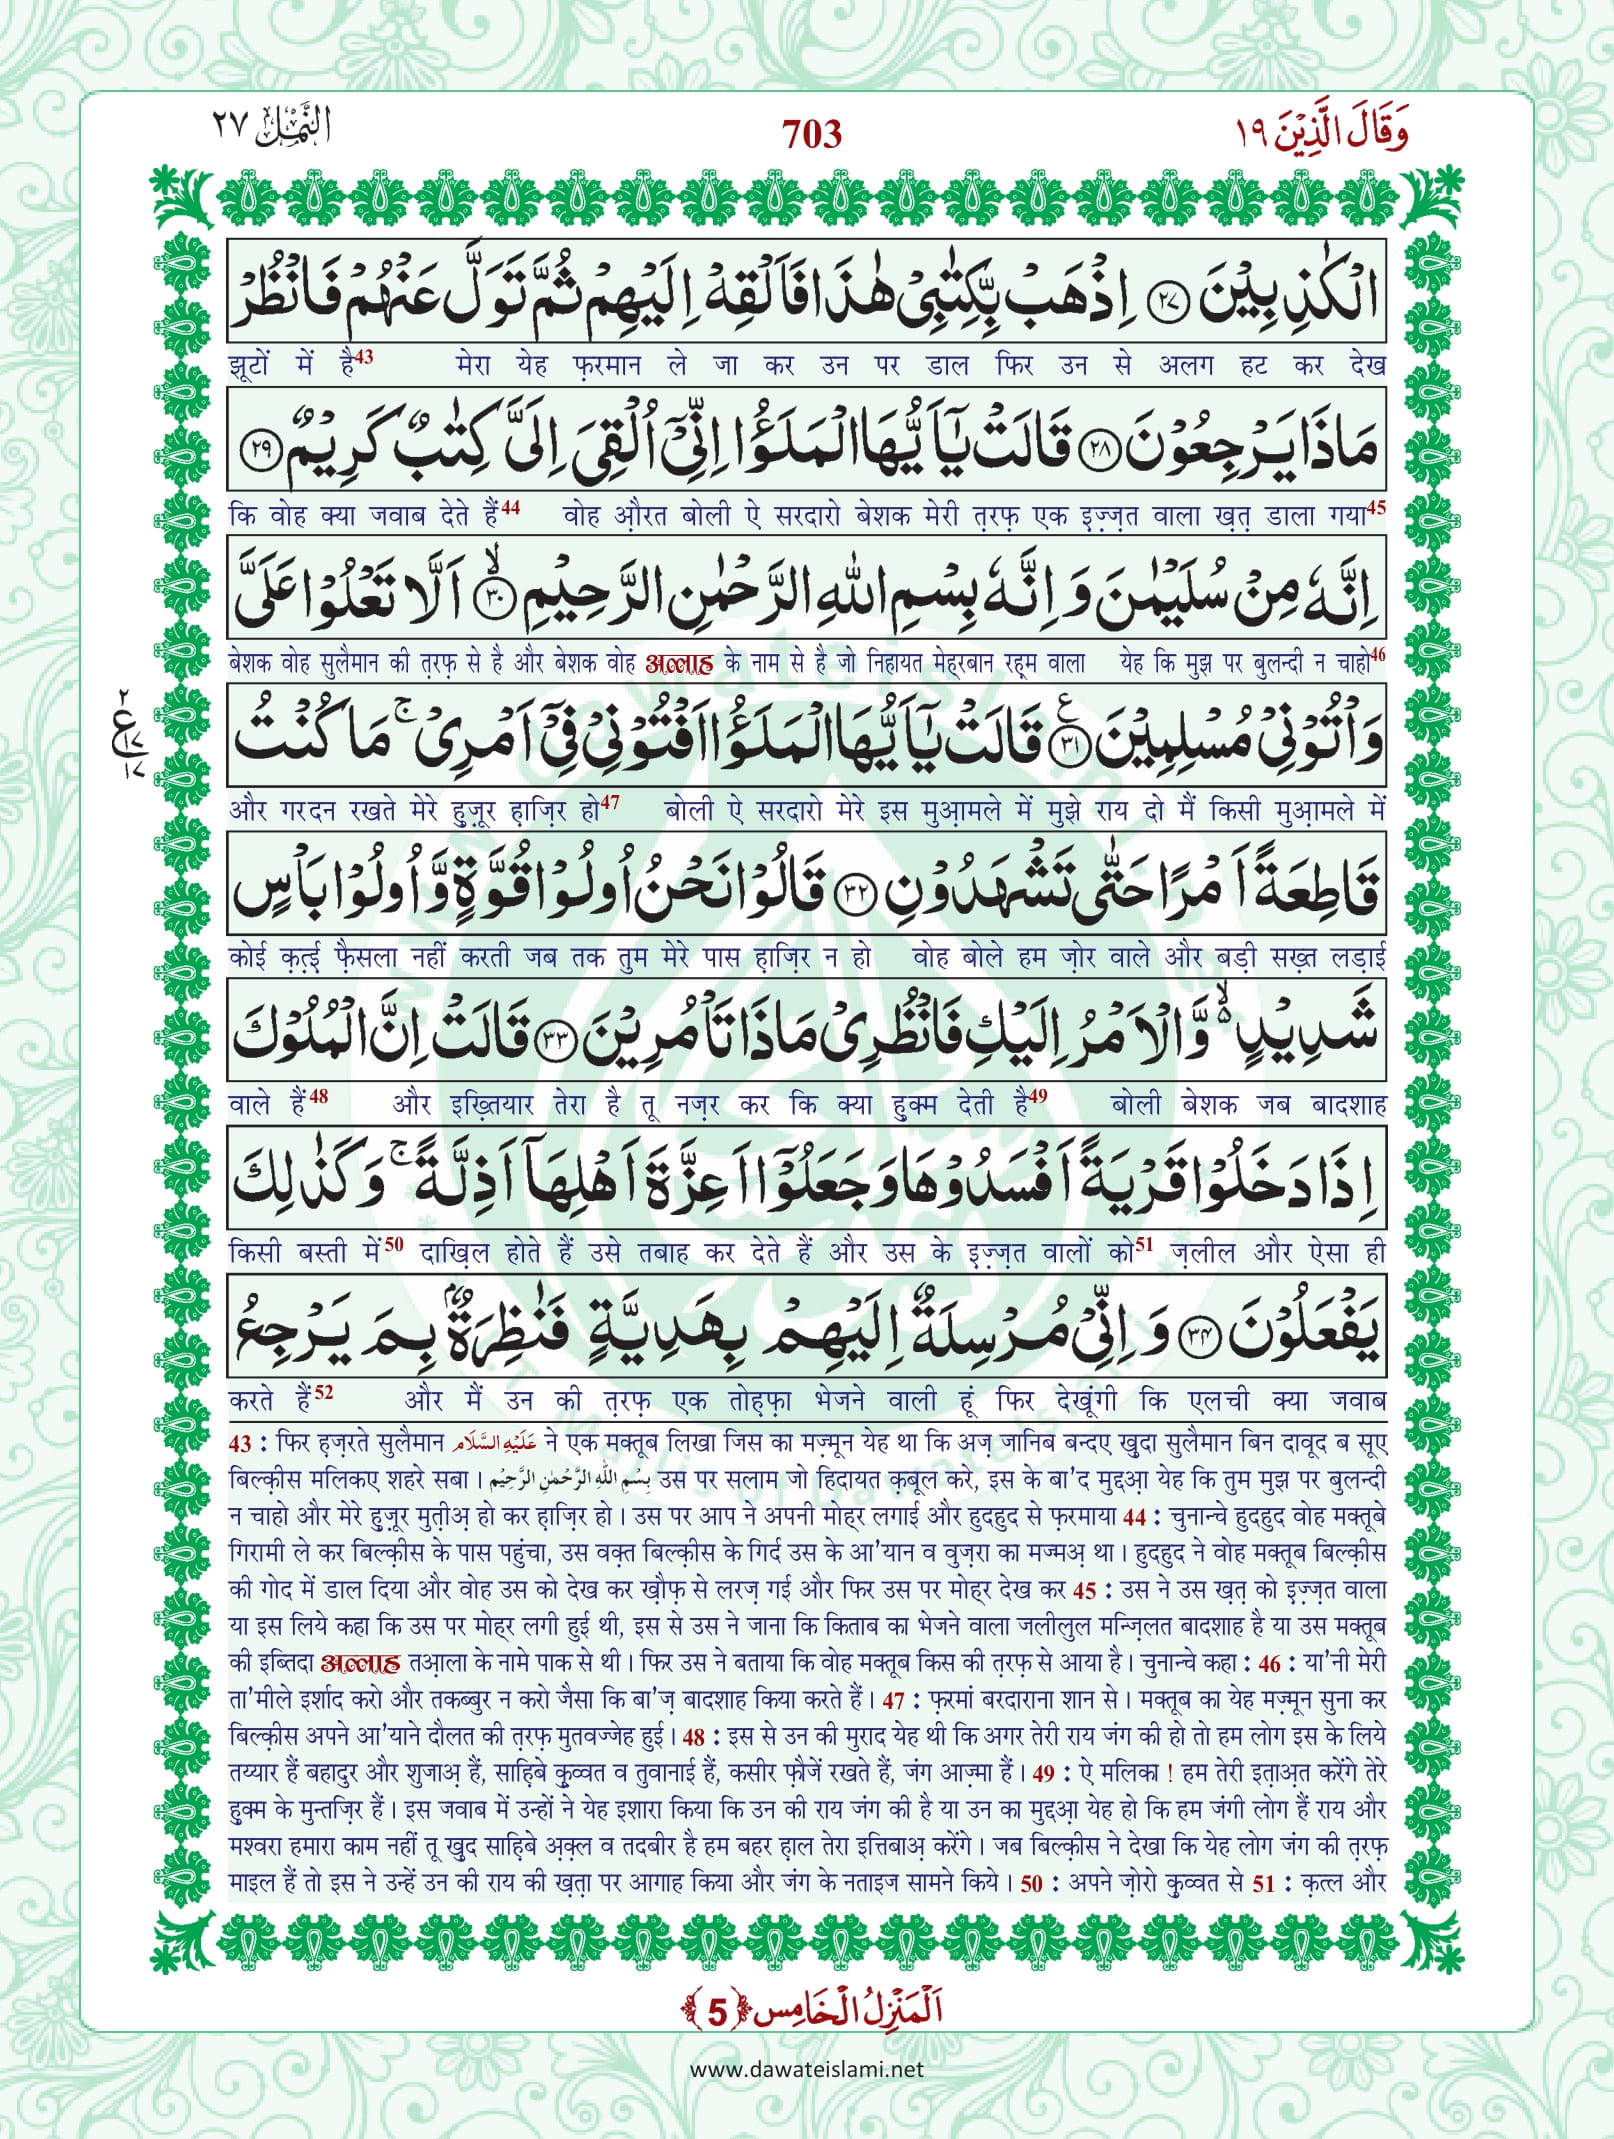 وَقَالَ الَّذِيْنَ ١٩
703
النَّمْل ٢٧
الْكٰذِبِيْنَ ﴿٢٧﴾ اِذْهَبْ بِّكِتٰبِيْ هٰذَا فَاَلْقِهْ اِلَيْهِمْ ثُمَّ تَوَلَّ عَنْهُمْ فَانْظُرْ
झूटों में है43 मेरा येह फ़रमान ले जा कर उन पर डाल फिर उन से अलग हट कर देख
مَاذَا يَرْجِعُوْنَ ﴿٢٨﴾ قَالَتْ يٰٓاَيُّهَا الْمَلَؤُا اِنِّيْٓ اُلْقِيَ اِلَيَّ كِتٰبٌ كَرِيْمٌ ﴿٢٩﴾
कि वोह क्या जवाब देते हैं44 वोह औ़रत बोली ऐ सरदारो बेशक मेरी त़रफ़ एक इ़ज़्ज़त वाला ख़त़ डाला गया45
اِنَّهٗ مِنْ سُلَيْمٰنَ وَ اِنَّهٗ بِسْمِ اللّٰهِ الرَّحْمٰنِ الرَّحِيْمِ ﴿٣٠﴾ۙ اَلَّا تَعْلُوْا عَلَيَّ
बेशक वोह सुलैमान की त़रफ़ से है और बेशक वोह अल्लाह के नाम से है जो निहायत मेहरबान रह़्म वाला येह कि मुझ पर बुलन्दी न चाहो46
وَ اْتُوْنِيْ مُسْلِمِيْنَ ﴿٣١﴾ع قَالَتْ يٰٓاَيُّهَا الْمَلَؤُا اَفْتُوْنِيْ فِيْٓ اَمْرِيْ ۚ مَا كُنْتُ
٢
ع
١٧
١٧
और गरदन रखते मेरे ह़ुज़ूर ह़ाज़िर हो47 बोली ऐ सरदारो मेरे इस मुआ़मले में मुझे राय दो मैं किसी मुआ़मले में
قَاطِعَةً اَمْرًا حَتّٰى تَشْهَدُوْنِ ﴿٣٢﴾ قَالُوْا نَحْنُ اُولُوْا قُوَّةٍ وَّ اُولُوْا بَاْسٍ
कोई क़त़्ई़ फ़ैसला नहीं करती जब तक तुम मेरे पास ह़ाज़िर न हो वोह बोले हम ज़ोर वाले और बड़ी सख़्त लड़ाई
شَدِيْدٍ ۙ۬ وَّ الْاَمْرُ اِلَيْكِ فَانْظُرِيْ مَاذَا تَاْمُرِيْنَ ﴿٣٣﴾ قَالَتْ اِنَّ الْمُلُوْكَ
वाले हैं48 और इख़्तियार तेरा है तू नज़र कर कि क्या ह़ुक्म देती है49 बोली बेशक जब बादशाह
اِذَا دَخَلُوْا قَرْيَةً اَفْسَدُوْهَا وَ جَعَلُوْٓا اَعِزَّةَ اَهْلِهَآ اَذِلَّةً ۚ وَ كَذٰلِكَ
किसी बस्ती में50 दाख़िल होते हैं उसे तबाह कर देते हैं और उस के इ़ज़्ज़त वालों को51 ज़लील और ऐसा ही
يَفْعَلُوْنَ ﴿٣٤﴾ وَ اِنِّيْ مُرْسِلَةٌ اِلَيْهِمْ بِهَدِيَّةٍ فَنٰظِرَةٌۢ بِمَ يَرْجِعُ
करते हैं52 और मैं उन की त़रफ़ एक तोह़फ़ा भेजने वाली हूं फिर देखूंगी कि एलची क्या जवाब
43 : फिर ह़ज़रते सुलैमान عَلَيْهِ السَّلَام ने एक मक्तूब लिखा जिस का मज़्मून येह था कि अज़ जानिब बन्दए ख़ुदा सुलैमान बिन दावूद ब सूए
बिल्क़ीस मलिकए शहरे सबा । بِسْمِ اللّٰهِ الرَّحْمٰنِ الرَّحِيْمِ उस पर सलाम जो हिदायत क़बूल करे, इस के बा'द मुद्दआ़ येह कि तुम मुझ पर बुलन्दी
न चाहो और मेरे ह़ुज़ूर मुत़ीअ़ हो कर ह़ाज़िर हो । उस पर आप ने अपनी मोहर लगाई और हुदहुद से फ़रमाया 44 : चुनान्चे हुदहुद वोह मक्तूबे
गिरामी ले कर बिल्क़ीस के पास पहुंचा, उस वक़्त बिल्क़ीस के गिर्द उस के आ'यान व वुज़रा का मज्मअ़ था । हुदहुद ने वोह मक्तूब बिल्क़ीस
की गोद में डाल दिया और वोह उस को देख कर ख़ौफ़ से लरज़ गई और फिर उस पर मोहर देख कर 45 : उस ने उस ख़त़ को इ़ज़्ज़त वाला
या इस लिये कहा कि उस पर मोहर लगी हुई थी, इस से उस ने जाना कि किताब का भेजने वाला जलीलुल मन्ज़िलत बादशाह है या उस मक्तूब
की इब्तिदा अल्लाह तआ़ला के नामे पाक से थी । फिर उस ने बताया कि वोह मक्तूब किस की त़रफ़ से आया है । चुनान्चे कहा : 46 : या'नी मेरी
ता'मीले इर्शाद करो और तकब्बुर न करो जैसा कि बा'ज़ बादशाह किया करते हैं । 47 : फ़रमां बरदाराना शान से । मक्तूब का येह मज़्मून सुना कर
बिल्क़ीस अपने आ'याने दौलत की त़रफ़ मुतवज्जेह हुई । 48 : इस से उन की मुराद येह थी कि अगर तेरी राय जंग की हो तो हम लोग इस के लिये
तय्यार हैं बहादुर और शुजाअ़ हैं, साह़िबे क़ुव्वत व तुवानाई हैं, कसीर फ़ौजें रखते हैं, जंग आज़्मा हैं । 49 : ऐ मलिका ! हम तेरी इत़ाअ़त करेंगे तेरे
ह़ुक्म के मुन्तज़िर हैं । इस जवाब में उन्हों ने येह इशारा किया कि उन की राय जंग की है या उन का मुद्दआ़ येह हो कि हम जंगी लोग हैं राय और
मश्वरा हमारा काम नहीं तू ख़ुद साह़िबे अ़क़्ल व तदबीर है हम बहर ह़ाल तेरा इत्तिबाअ़ करेंगे । जब बिल्क़ीस ने देखा कि येह लोग जंग की त़रफ़
माइल हैं तो इस ने उन्हें उन की राय की ख़त़ा पर आगाह किया और जंग के नताइज सामने किये । 50 : अपने ज़ोरो क़ुव्वत से 51 : क़त्ल और
اَلْمَنْزِلُ الْخَامِس ﴿5﴾
www.dawateislami.net